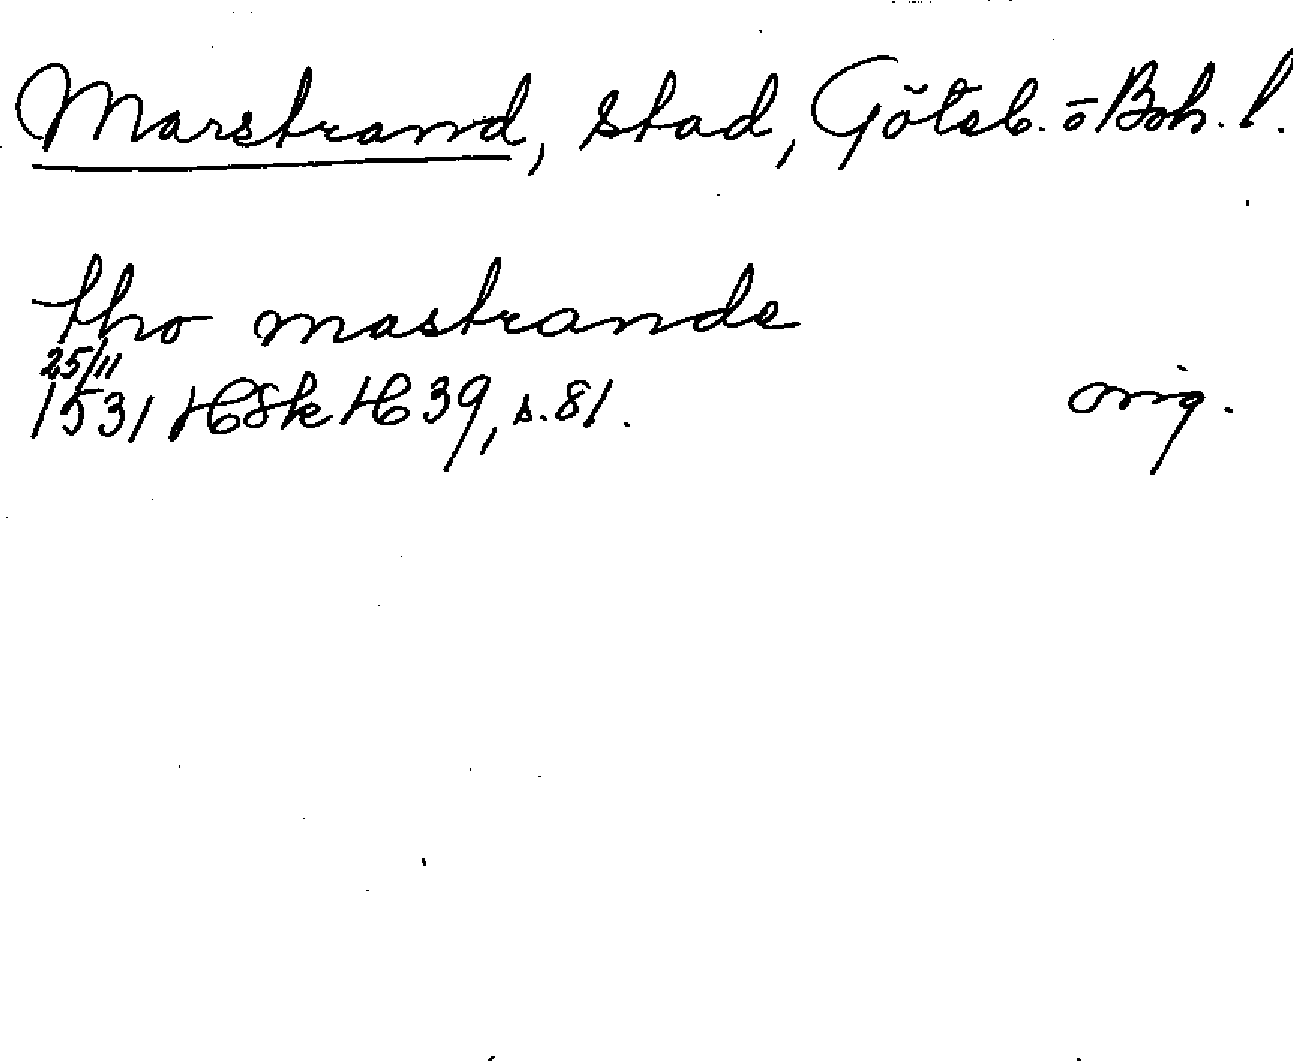 Marstrand, stad, Göteb. o Boh. l.
tho mastrande
25/11
1531 HSkH 39, s. 81.
orig.